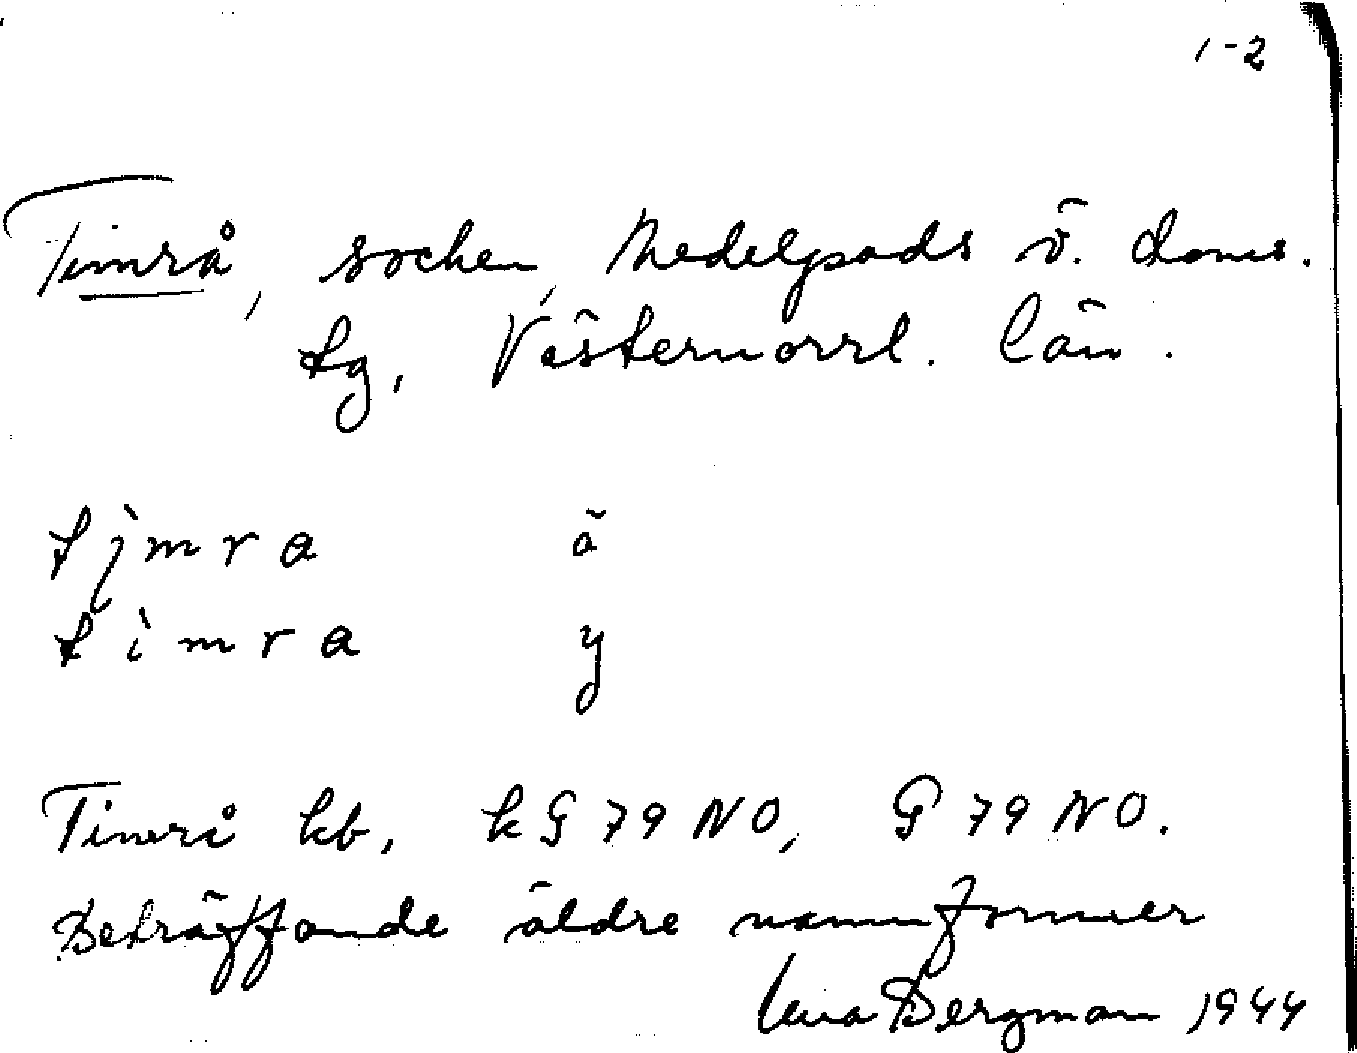 1-2
Timrå, socken, Medelpads v. doms.
tg, Västernorrl. län.
tjmra ä
timra y
Timrå kb, kG 79 NO, G 79 NO.
Beträffande äldre namnformer
Bergman 1944